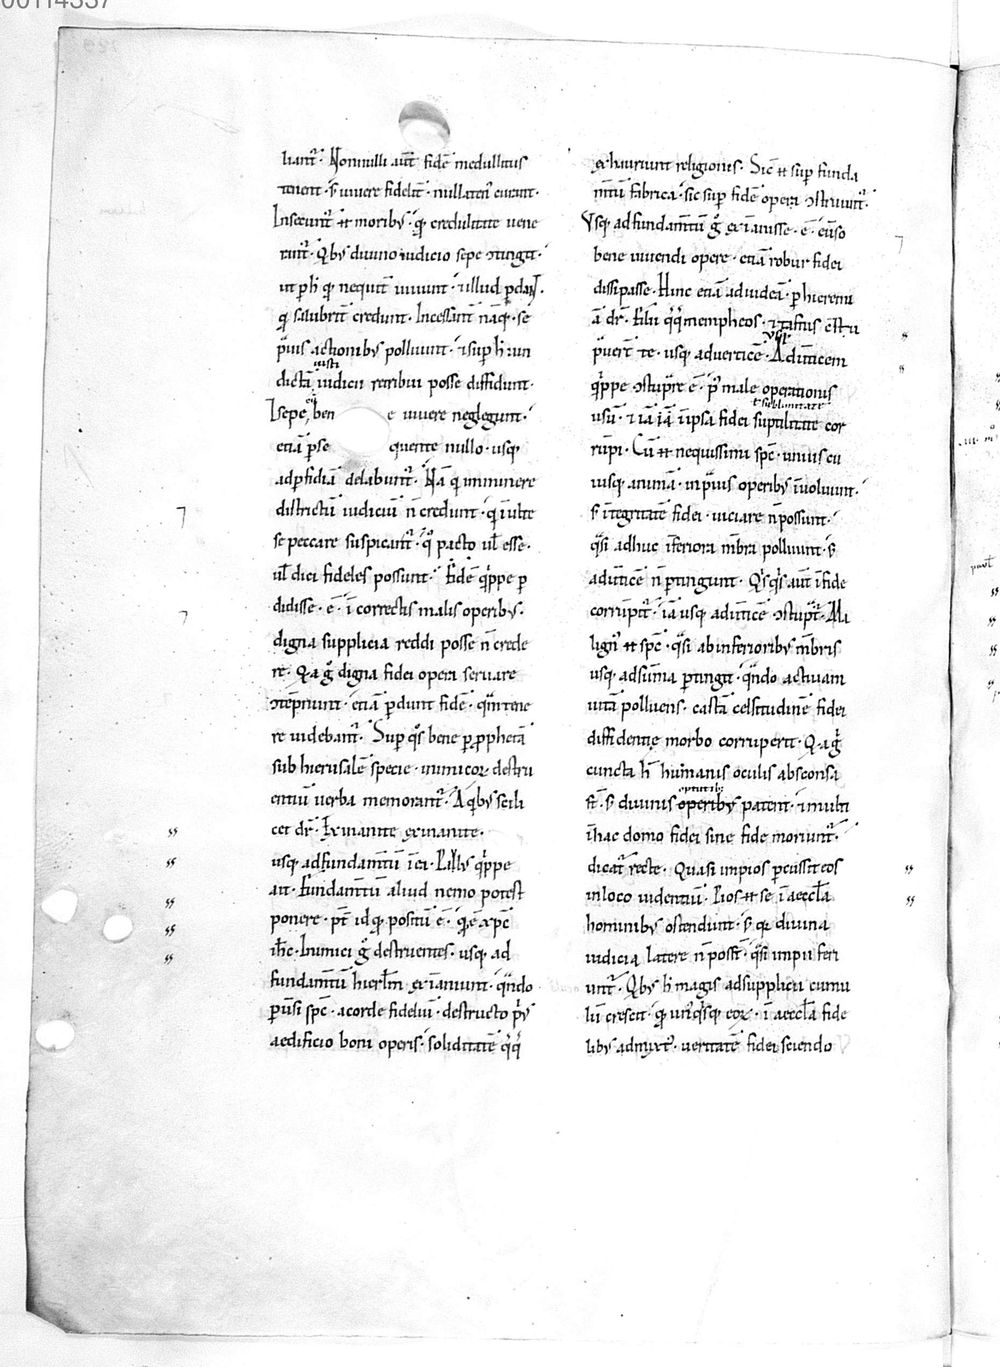 00114337
liant̄. Nonnulli aut̄ fidē medullitus
tenent. s̄ uiuere fidelit̄. nullaten̄ curant.
Insecunt̄ eī moribꝫ. qđ credulitate uene
rant̄. Qbꝫ diuino iudicio sepe ↄtingit.
ut ꝑ h̄ qđ nequit̄ uiuunt. ⁊ illud ꝑdant.
qđ salubrit̄ credunt. Incessant̄ nāqꝫ. se
p̄uis actionibꝫ polluunt. ⁊ suꝑ h̄ iun
dictā iusti iudicii retribui posse diffidunt.
⁊ sepe eū ben e uiuere neglegunt.
etiā ꝑse quente nullo. usqꝫ
ad ꝑfidiā delabunt̄. Nā qđ imminere
districtū iudiciū n̄ credunt. qđ inulte
se peccare suspicant̄. q̊ pacto ul̄ esse.
ul̄ dici fideles possunt. Fidē q̄ppe ꝑ
didisse. ē. ī correctis malis operibꝫ.
digna supplicia reddi posse n̄ crede
re. Q̄a ḡ digna fidei opera seruare
ↄtēpnunt. etiā ꝑdunt fidē. quā tene
re uidebant̄. Suꝑ q̊s bene ꝑ ꝓphetā
sub hierusalē specie. inimicoꝝ destru
entiū uerba memorant̄. A qbꝫ scili
cet dr̄. Exinanite exinanite.
usqꝫ ad fundam̄tū ī ei. Paulꝫ q̄ppe
ait. Fundam̄tū aliud nemo potest
ponere. p̄t id qđ positū ē. qđ ē xp̄c
ih̄c. Inimici ḡ destruentes. usqꝫ ad
fundam̄tū hierl̄m exinaniunt. q̄ndo
ꝑuersi sp̄c. a corde fideliū. destructo pꝰ
aedificio boni operis. soliditatē q̊qꝫ
exhauriunt religionis. Sic̄ eī suꝑ funda
m̄tū fabrica. sic suꝑ fidē opera ↄstruunt̄.
Vsqꝫ ad fundam̄tū ḡ exinanisse. ē. euerso
bene uiuendi opere. etiā robur fidei
dissipasse. Hinc etiā ad iudeā. ꝑ hieremi
ā dr̄. Filii q̊qꝫ mempheos. ⁊ tafnis ↄstu
prauert̄ te. usqꝫ ad uerticē. Ad uerticem
q̄ppe ↄstuprare ē. p̊ male operationis
usū. ⁊iā īā ī ipsa fidei suptilitate cor
rūpi. Cū eī nequissimi sp̄c. uniuscu
iusqꝫ animā. in prauis operibꝫ ī uoluunt.
s̄ ītegritatē fidei. uiciare n̄ possunt.
q̄si adhuc īferiora m̄bra polluunt. s̄
ad uerticē n̄ ꝑtingunt. Qsqs aut̄ ī fide
corrūpit̄. iā usqꝫ ad uerticē ↄstuprat̄. Ma
lign̄ eī sp̄c. q̄si ab inferioribꝫ m̄bris
usqꝫ ad sūma ꝑtingit. q̄ndo actiuam
uitā polluens. castā celsitudinē fidei
diffidentię morbo corruperit. Q̄a ḡ
cuncta h̄ humanis oculis absconsa
st̄. s̄ diuinis operibꝫ patent. ⁊ multi
ī hac domo fidei sine fide moriunt̄.
dicat̄ recte. Quasi impios ꝑcussit eos
in loco uidentiū. Pios eī se ī aeccl̄a
hominibꝫ ostendunt. s̄ qꝛ diuina
iudicia latere n̄ posst̄. q̄si impii feri
unt̄. Qbꝫ h̄ magis ad supplicii cumu
lū crescit. qđ un̄qsqꝫ eoꝝ. ī aeccl̄a fide
libꝫ admixt̄. ueritatē fidei sciendo